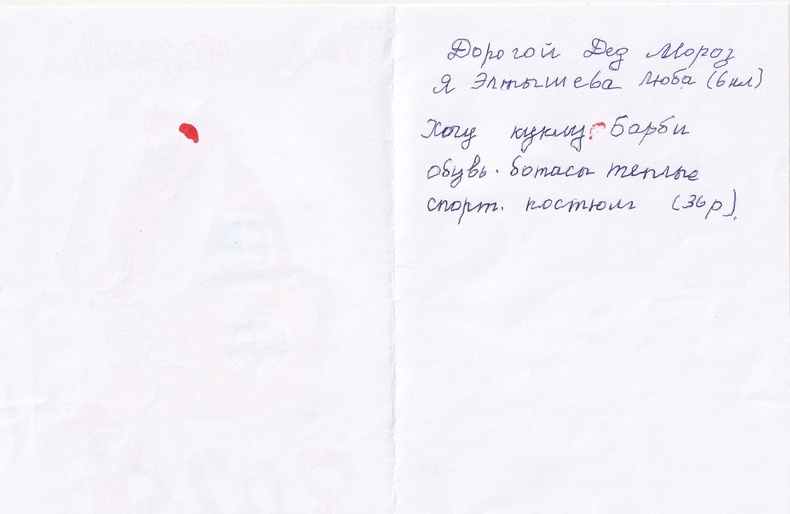 Дорогой Дед Мороз
Я Элтышева Люба (6 кл)
Хочу куклу Барби
обувь. ботасы теплые
спорт. костюм (36 р).